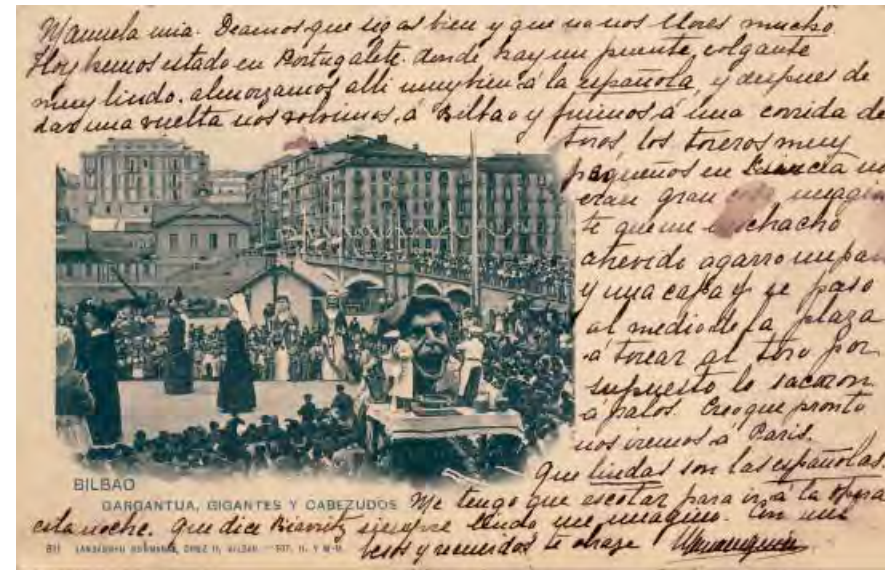 Manuela mia. Deamos que sigas bien y que no nos llores mucho.
Hoy hemos estado en Portugalete. donde hay un puente colgante
muy lindo. almorzamos alli muy bien á la española, y despues de
dar una vuelta nos volvimos, á Bilbao y fuimos á una corrida de
toros, los toreros muy
pequeños en ciencia no
eran gran cosa imagin
te que un muchacho
atrevido agarro un pa
y una capa y se paso
al medio de la plaza
á torear al toro por
supuesto lo sacaron
á palos. Creo que pronto
nos iremos á Paris.
Que lindas son las españolas
BILBAO
GARGANTUA, GIGANTES Y CABEZUDOS
Me tengo que escotar para ir á la opera
esta noche. Que dice Biarritz siempre lindo me imagino. Con mil
besos y recuerdos te abraza
811 LANDABURU HERMANAS, CRUZ 11, BILBAO. - FOT. H. Y M-M.